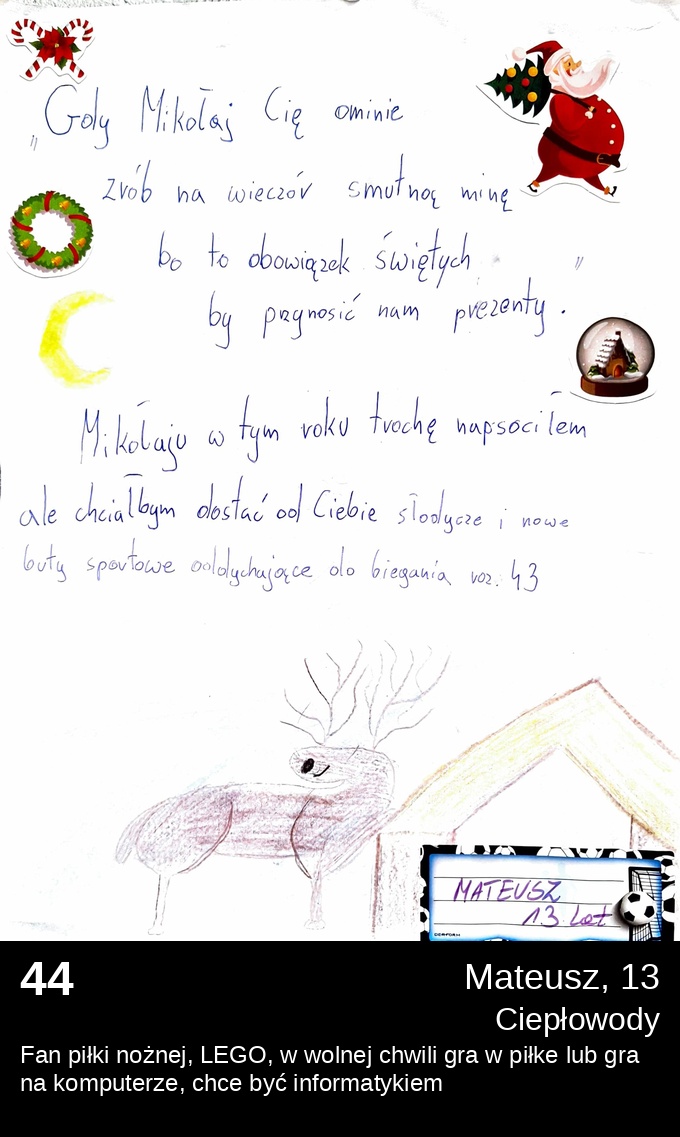 „Gdy Mikołaj Cię ominie
zrób na wieczór smutną minę
bo to obowiązek świętych
by przynosić nam prezenty."
Mikołaju w tym roku trochę napsociłem
ale chciałbym dostać od Ciebie słodycze i nowe
buty sportowe oddychające do biegania roz. 43
MATEUSZ
13 Lat
44
Mateusz, 13
Ciepłowody
Fan piłki nożnej, LEGO, w wolnej chwili gra w piłke lub gra
na komputerze, chce być informatykiem